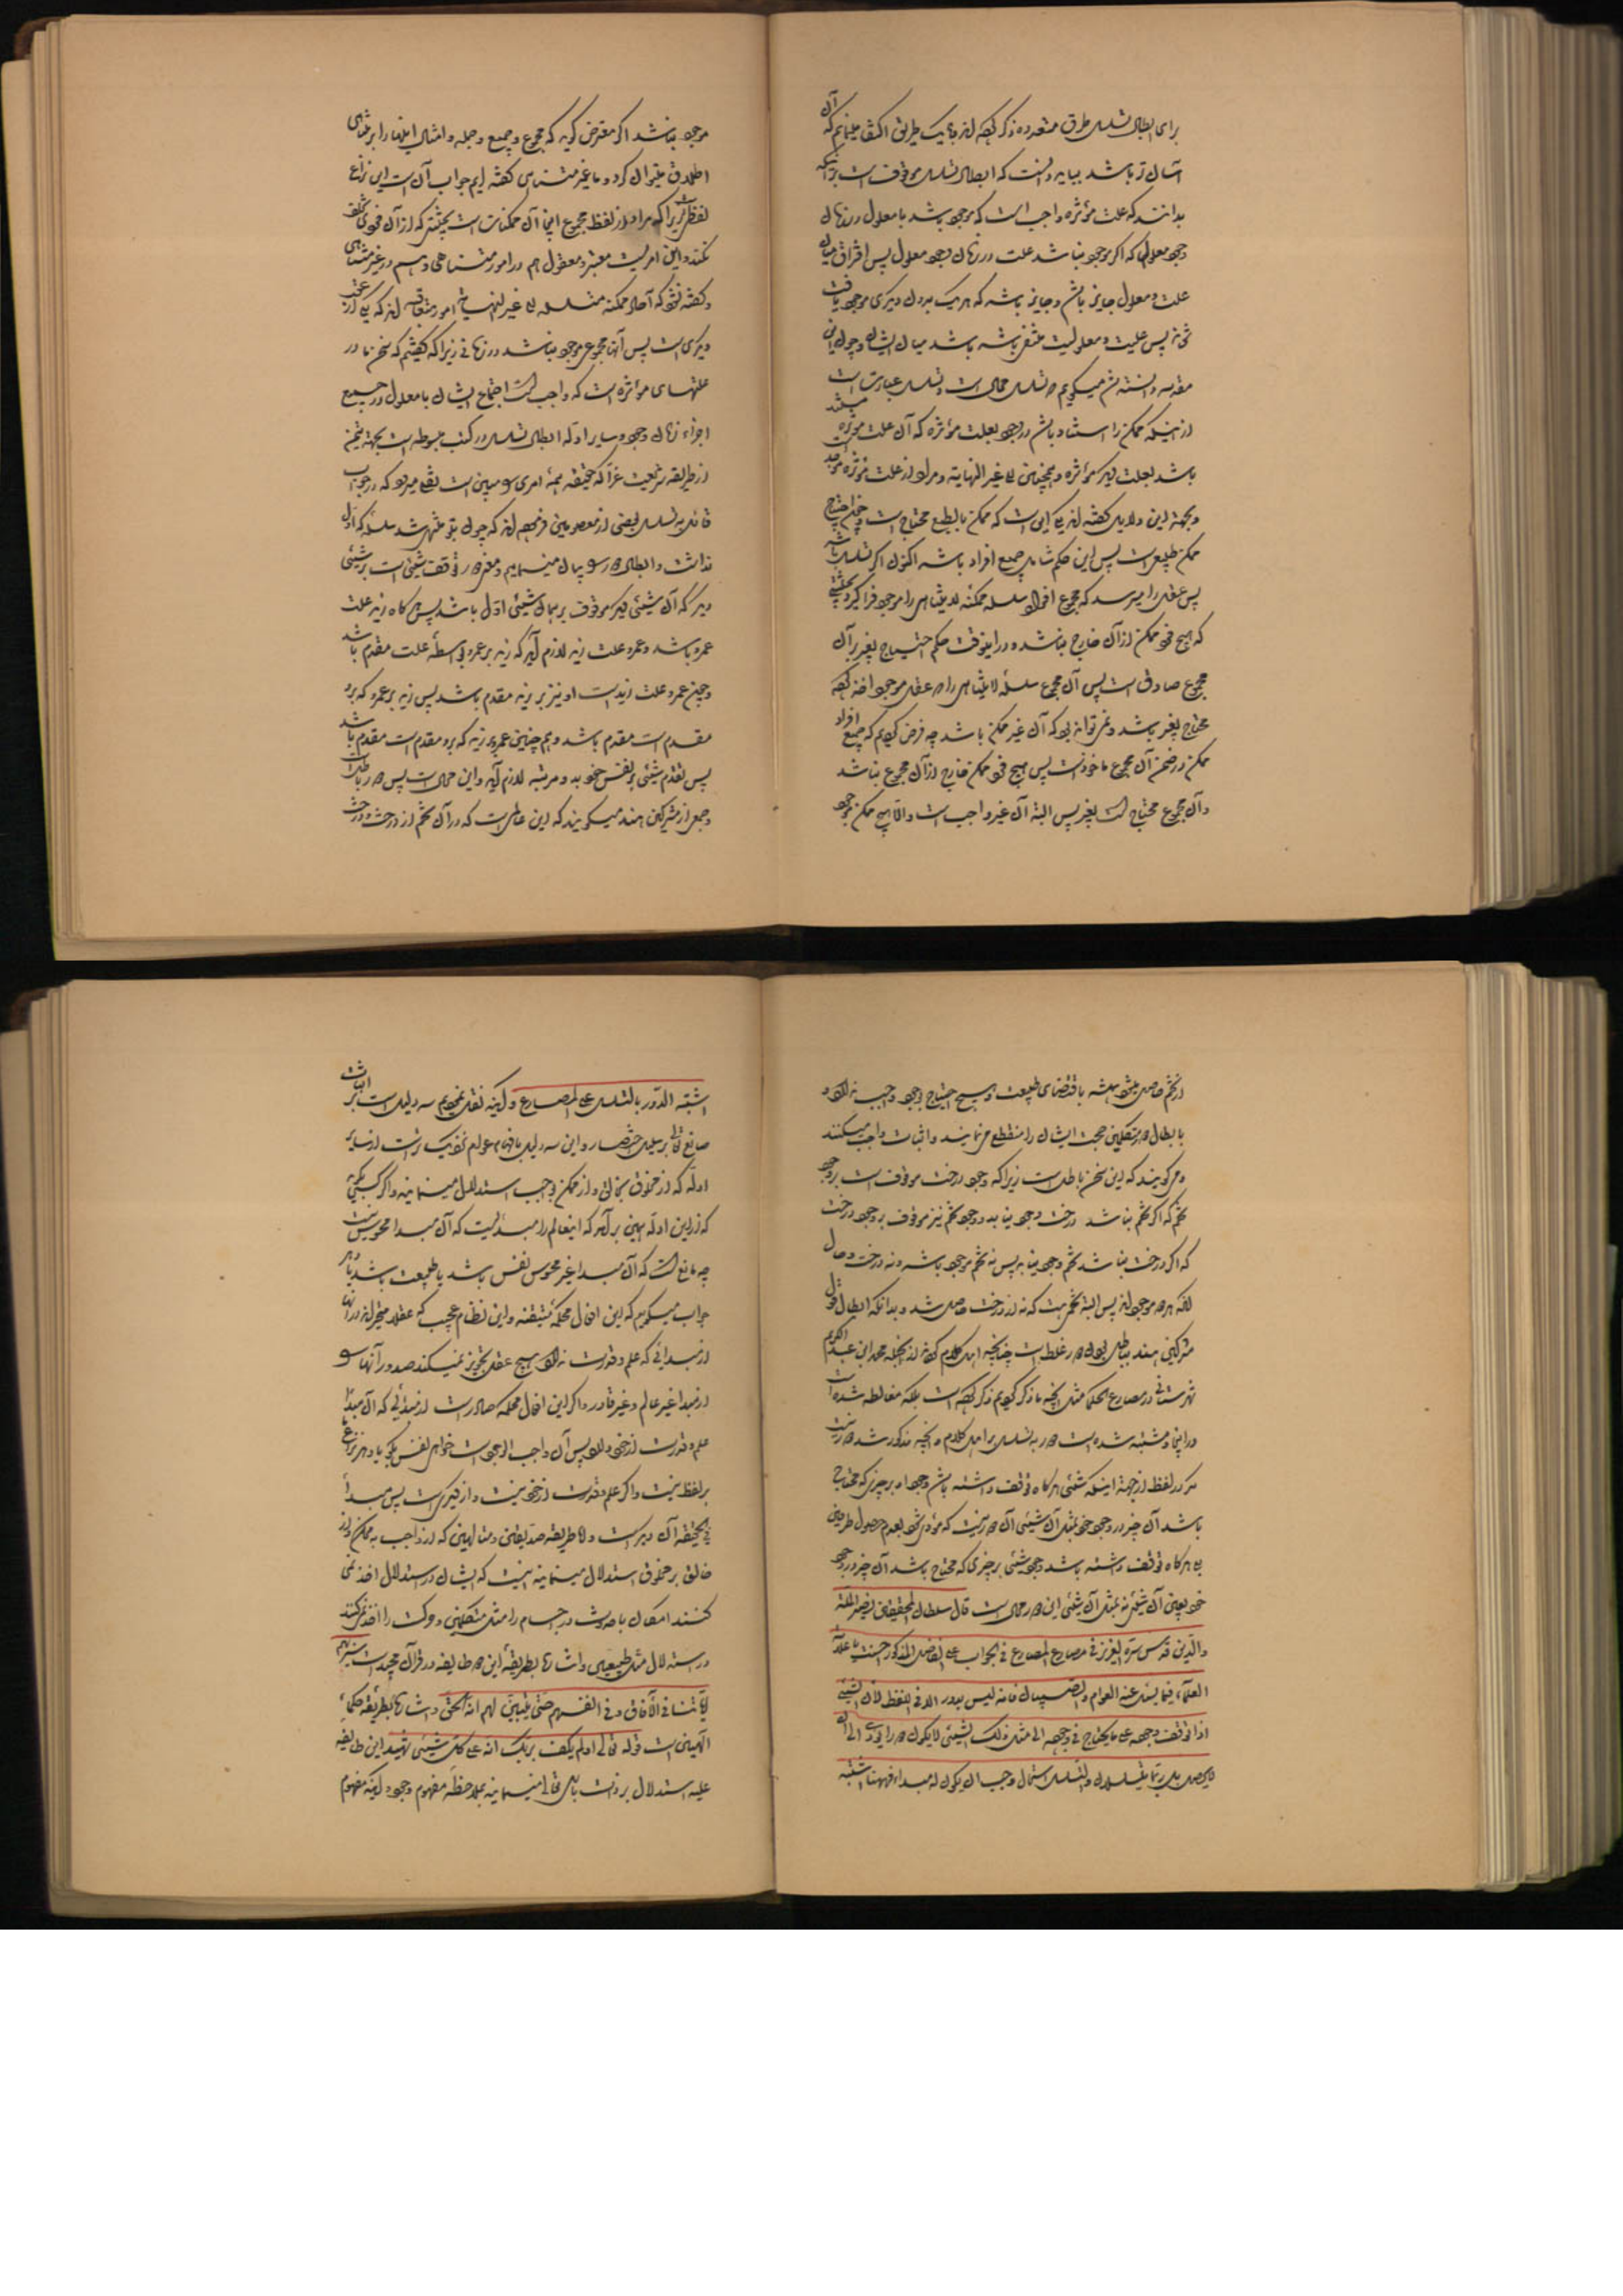 برای ابطال تسلسل طرق متعدده ذکر کرده‌اند ما بیک طریق اکتفا مینمایم که آن
آسان تر باشد بباید دانست که ابطال تسلسل موقوف است برآنکه
بدانند که علت مؤثره واجب است که موجود باشد با معلول در زمان
وجود معلول که اگر موجود نباشد علت در زمان وجود معلول پس افتراق میان
علت و معلول جایز باشد و جایز باشد که هر یک بدون دیگری موجود یافت
شوند پس علیت و معلولیت منتفی باشد میان ایشان و چون این
مقدمه دانسته شد میگویم که تسلسل محال است و تسلسل عبارت است
از اینکه ممکن را استناد باشد در وجود بعلت مؤثره که آن علت مؤثره مستند
باشد بعلت دیگر مؤثره و همچنین الی غیر النهایة و مراد از علت مؤثره موجد
و بجهة این دلایل گفته‌اند یکی این است که ممکن بالطبع محتاج است و چون احتیاج
ممکن طبیعی است پس این حکم شامل جمیع افراد باشد اکنون اگر تسلسل باشد
پس عقل را میرسد که مجموع افراد سلسله ممکنه لایتناهی را موجود فرا گیرد بحیثیتی
که هیچ فرد ممکن از آن خارج نباشد و در اینوقت حکم احتیاج بغیر بر آن
مجموع صادق است پس آن مجموع سلسله لایتناهی را که عقل موجود اخذ کرده
محتاج بغیر باشد و نمی تواند بود که آن غیر ممکن باشد چه فرض کردیم که جمیع افراد
ممکن در ضمن آن مجموع ماخوذ است پس هیچ فرد ممکن خارج از آن مجموع نباشد
و آن مجموع محتاج است بغیر پس البته آن غیر واجب است و الا هیچ ممکن موجود
موجود نباشد اگر معترض گوید که مجموع و جمیع و جمله و امثال اینها را بر متناهی
اطلاق میتوان کرد و ما غیر متناهی گفته ایم جواب آن است این نزاع
لفظی است زیرا که مراد از لفظ مجموع اینجا آن ممکنات است بحیثیتی که از آن فردی تخلف
نکند و این امریست معتبر و معقول هم در امور متناهی و هم در غیر متناهی
و گفته نشود که آحاد ممکنه متسلسله الی غیر النهایة امور متعاقبه‌اند که یکی از عقب
دیگری است پس آنها مجموعی موجود نباشد در زمانی زیرا که گفتیم که سخن ما در
علتهای مؤثره است که واجب است اجتماع ایشان با معلول در جمیع
اجزاء زمان وجود و سایر ادله ابطال تسلسل در کتب مبسوطه است بجهة تیمن
از طریقه شریعت غرّا که حقیقت همه امری و مبین است نقل میرود که در جواب
قائل به تسلسل بعضی از معصومین فرموده‌اند که چون بتو منتهی شد سلسله که اول
نداشت و ابطال دور و بیان مینمایم و معنی دور توقف شیئی است بر شیئی
دیگر که آن شیئی دیگر موقوف بر همان شیئی اول باشد پس هر گاه زید علت
عمرو باشد و عمرو علت زید لازم آید که زید بر عمرو بواسطه علت مقدم باشد
و چون عمرو علت زید است او نیز بر زید مقدم باشد پس زید بر عمرو که برو
مقدم است مقدم باشد و هم چنین عمرو بر زید که برو مقدم است مقدم باشد
پس تقدم شیئی بر نفس خود بدو مرتبه لازم آید و این محال است پس دور باطل است
و جمعی از مشرکین هند میگویند که این عالمی است که در آن تخم از درخت و درخت
از تخم حاصل میشود همیشه باقتضای طبیعت و هیچ احتیاج بوجود واجب ندارد و
بابطال دور متکلمین حجت ایشان را منقطع می نمایند و اثبات واجب میکنند
و می گویند که این سخن باطل است زیرا که وجود درخت موقوف است بر وجود
تخم که اگر تخم نباشد درخت وجود نیابد و وجود تخم نیز موقوف بر وجود درخت
که اگر درخت نباشد تخم وجود نیابد پس نه تخم موجود باشد و نه درخت و حال
آنکه هر دو موجودند پس البته تخمی هست که نه از درخت حاصل شد و بدانکه ابطال قول
مشرکین هند بباطل بودن دور غلط است چنانچه اهل کلام کرده‌اند از جمله محمد ابن عبد الکریم
شهرستانی در مصارع الحکما مثل آنچه ما ذکر کردیم ذکر کرده است بلکه مغالطه شده است
در اینجا و مشتبه شده است دور به تسلسل بر اهل کلام و آنچه مذکور شد دور نیست
مگر در لفظ از جهة اینکه شیئی هر گاه توقف داشته باشد وجود او بر چیزی که محتاج
باشد آن چیز در وجود خود بمثل آن شیئی آن دور نیست که مؤدی شود بعدم حصول طرفین
بلی هر گاه توقف داشته باشد وجود شیئی بر چیزی که محتاج باشد آن چیز در وجود
خود بعین آن شیئی نه بمثل آن شیئی این دور محال است قال سلطان المحققین نصیر الملة
والدین قدس سره العزیز فی مصارع المصارع فی الجواب عن الفاضل المذکور احسنت یا علامة
العلماء فیما یسئل عنه العوام والصبیان فانه لیس بدور الا فی اللفظ لان الشیئ
اذا توقف وجوده علی ما یحتاج فی وجوده الی مثل ذلک الشیئی لا یکون دورا یؤدی الی ان
لا یحصل بل ربما یتسلسل والتسلسل استحال وجب ان یکون له مبداء فههنا اشتبه
اشتبه الدور بالتسلسل علی المصارع و آنچه نقل نمودیم سه دلیل است بر اثبات
صانع تعالی بر سبیل اختصار و این سه دلیل بافهام عوام نزدیک تر است از سایر
ادله که از مخلوق بخالق و از ممکن بواجب استدلال مینمایند و اگر کسی بگوید
که از این ادله همین بر آمد که اینعالم را مبدئیست که آن مبدا محسوس نیست
چه مانع است که آن مبدا غیر محسوس نفس باشد یا طبیعت باشد یا دهر
جواب میگویم که این افعال محکمه متیقنه و این نظام عجیب که عقلا متحیرند در آنها
از مبدائی که علم و قدرت نداشته باشد هیچ عقل تجویز نمیکند صدور آنها
از مبدا غیر عالم و غیر قادر و اگر این افعال محکمه صادر است از مبدئی که آن مبدا
علم و قدرت از خود دارد پس آن واجب الوجود است خواهی نفس بگو یا دهر نزاع
بر لفظ نیست و اگر علم و قدرت از خود نیست و از غیری است پس مبدأ
فی الحقیقه آن دیگر است و اما طریقه صدیقین و متالهین که از واجب به ممکن و از
خالق بر مخلوق استدلال مینمایند اینست که ایشان در استدلال اخذ نمی
کنند امکان یا حدوث در اجسام را مثل متکلمین و حرکت را اخذ نمی کنند
در استدلال مثل طبیعیین و اشاره بطریقه این دو طایفه در قرآن مجید است سنریهم
آیاتنا فی الآفاق و فی انفسهم حتی یتبین لهم انه الحق و اشاره بطریقه حکماء
الهیین است قوله تعالی اولم یکف بربک انه علی کل شیئی شهید این طایفه
علیه استدلال بر ذات باری تعالی مینمایند بملاحظه مفهوم وجود اینکه مفهوم